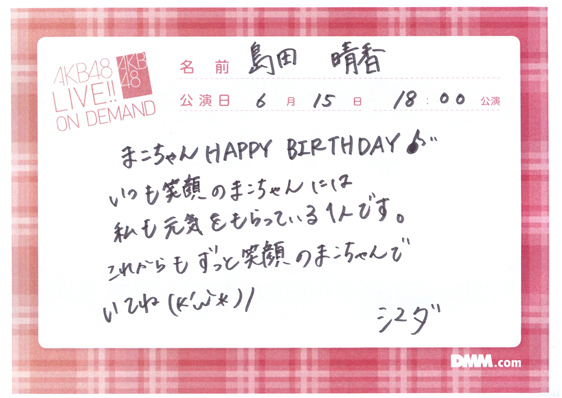 AKB48
LIVE!!
ON DEMAND
AKB
48
名前 島田 晴香
公演日 6月 15日 18:00 公演
まこちゃん HAPPY BIRTHDAY♪
いつも笑顔のまこちゃんには
私も元気をもらっている1人です。
これからもずっと笑顔のまこちゃんで
いてね(*'ω'*)/
シマダ
DMM.com